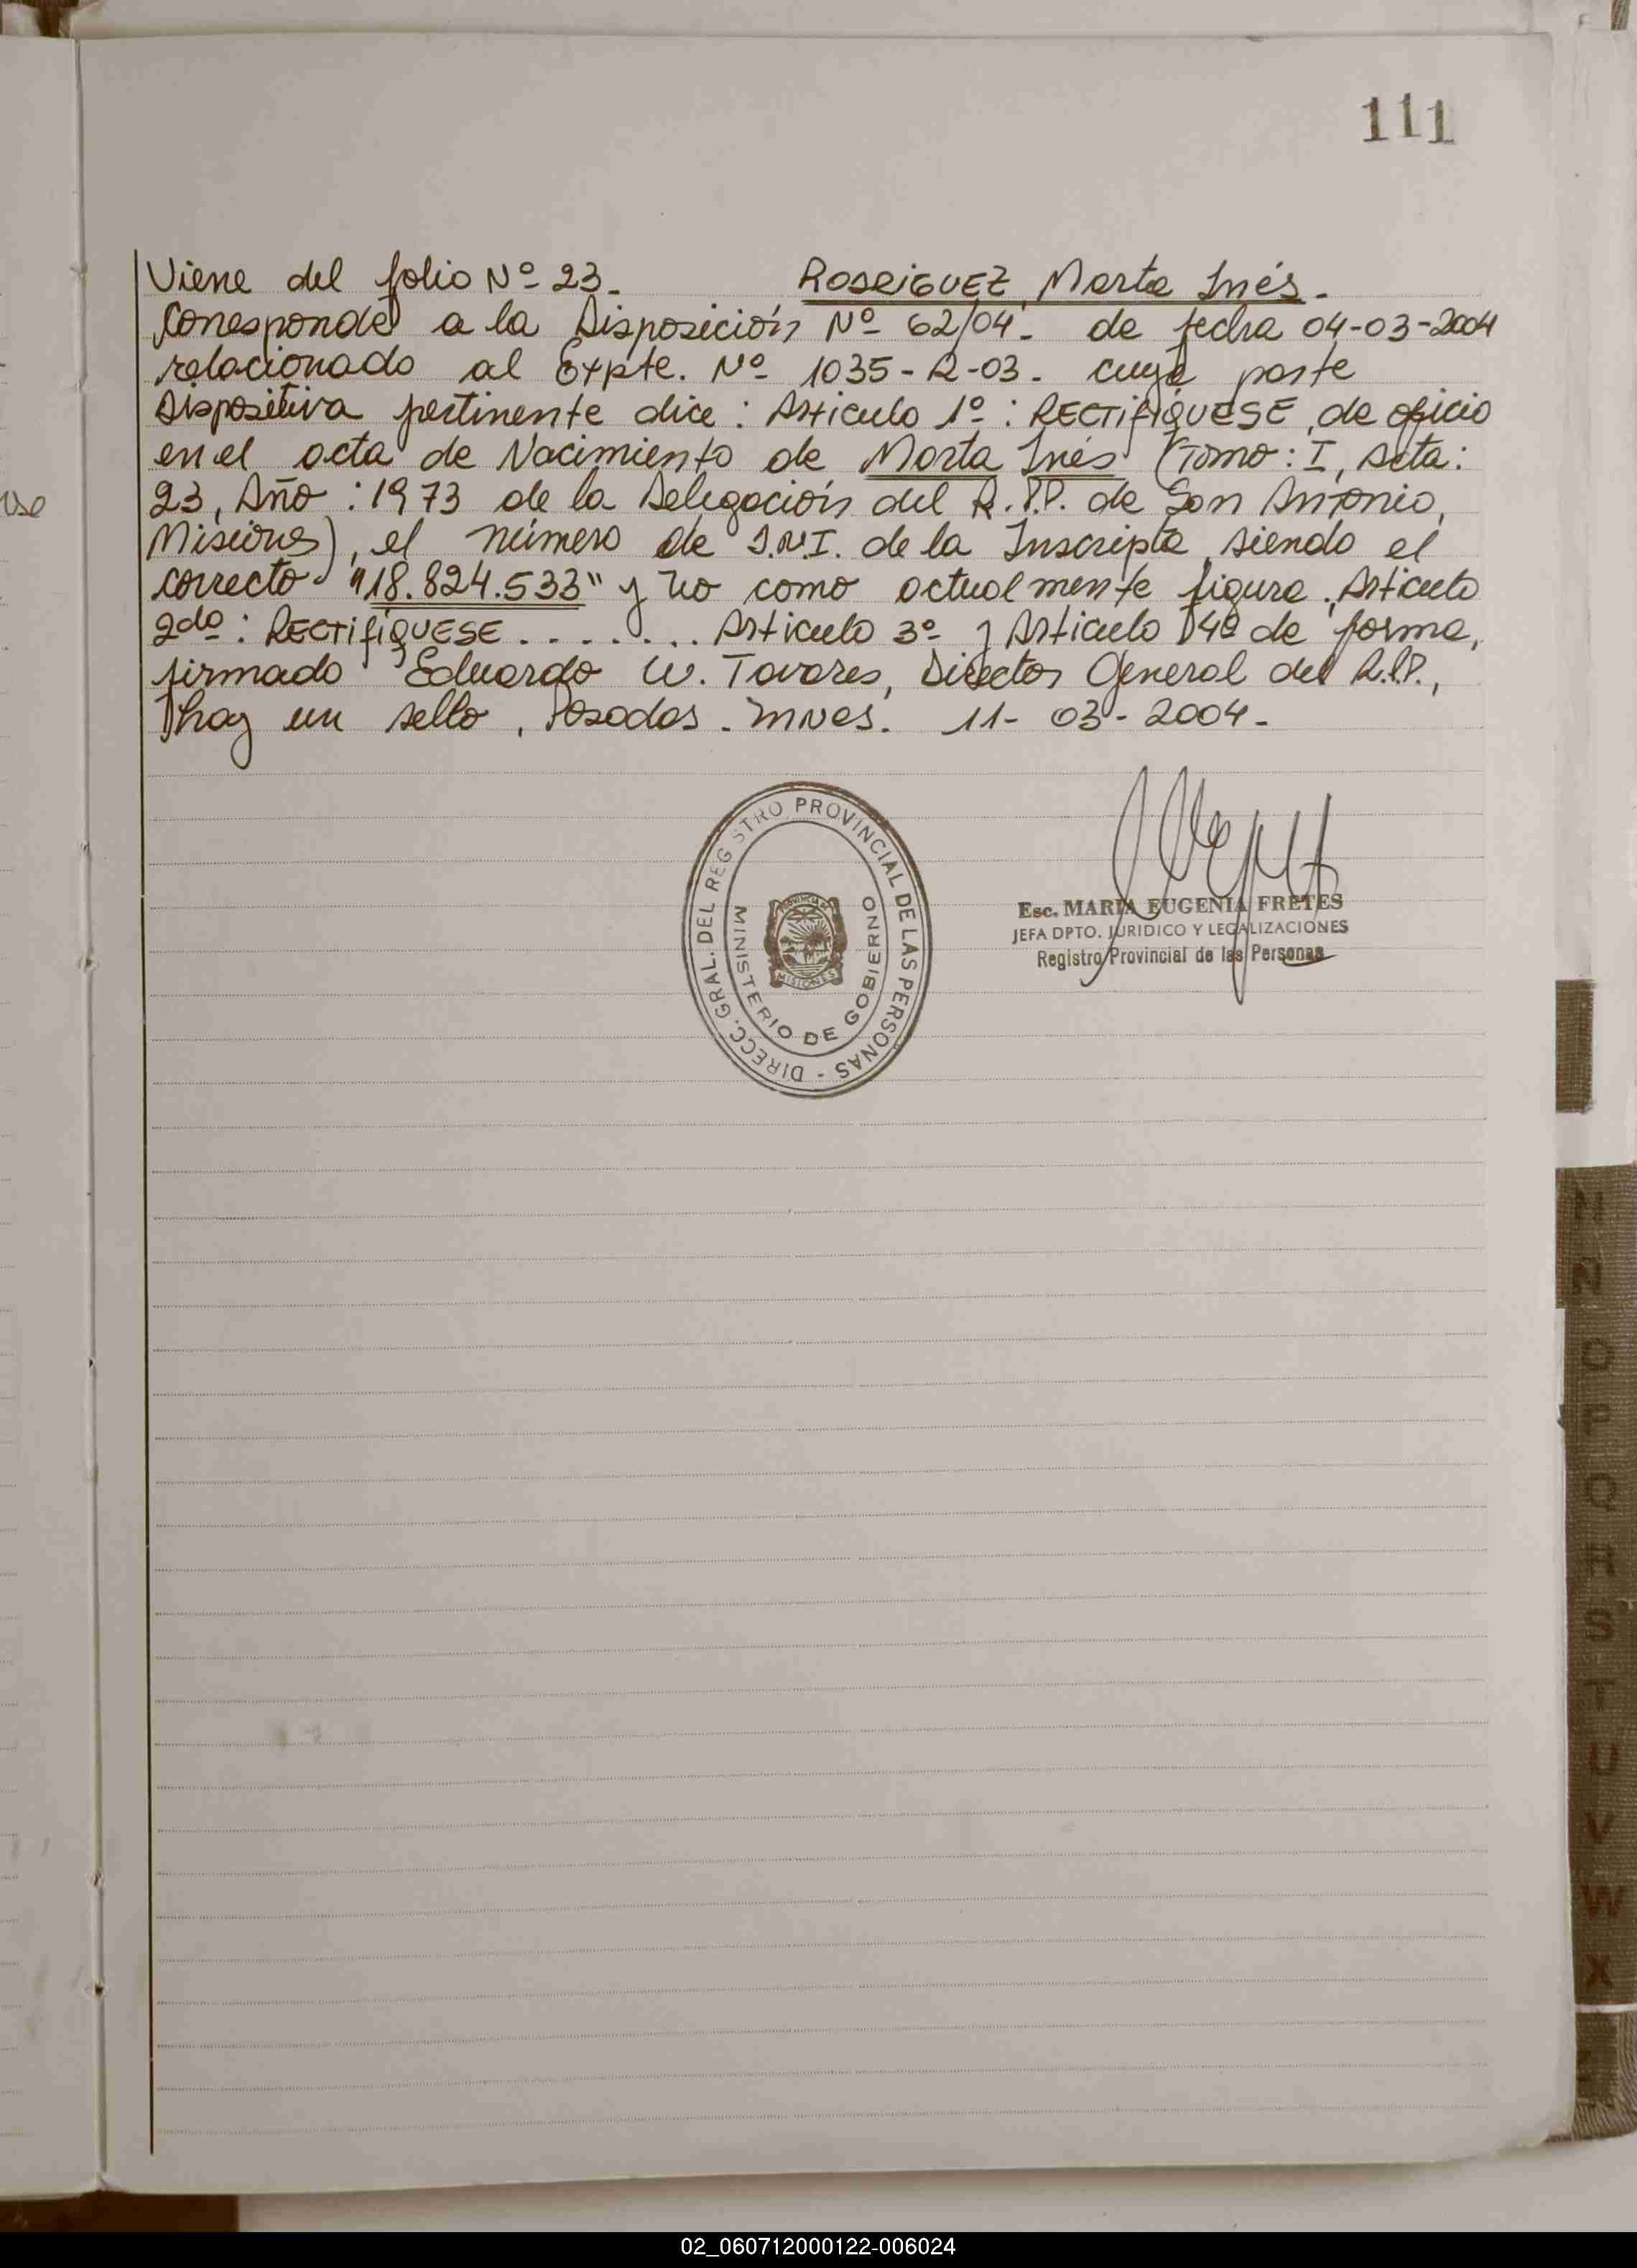 111
Viene del folio Nº 23. RODRIGUEZ, Marta Inés.
Corresponde a la Disposición Nº 62/04. de fecha 04-03-2004
relacionado al Expte. Nº 1035-R-03. cuya parte
Dispositiva pertinente dice: Articulo 1º: RECTIFÍQUESE, de oficio
en el acta de Nacimiento de Marta Inés (Tomo: I, Acta:
23, Año: 1973 de la Delegación del R.P.P. de San Antonio,
Misiones), el número de D.N.I. de la Inscripta, siendo el
correcto "18.824.533" y no como actualmente figura. Articulo
2do: RECTIFÍQUESE........ Articulo 3º y Articulo 4º de forma,
firmado Eduardo W. Tavares, Director General del R.P.P.,
hay un sello, Posadas. Mnes. 11-03-2004.
DIRECC. GRAL. DEL REGISTRO PROVINCIAL DE LAS PERSONAS -
MINISTERIO DE GOBIERNO
PROVINCIA DE
MISIONES
Esc. MARIA EUGENIA FRETES
JEFA DPTO. JURIDICO Y LEGALIZACIONES
Registro Provincial de las Personas
N
Ñ
O
P
Q
R
S
T
U
V
W
X
02_060712000122-006024